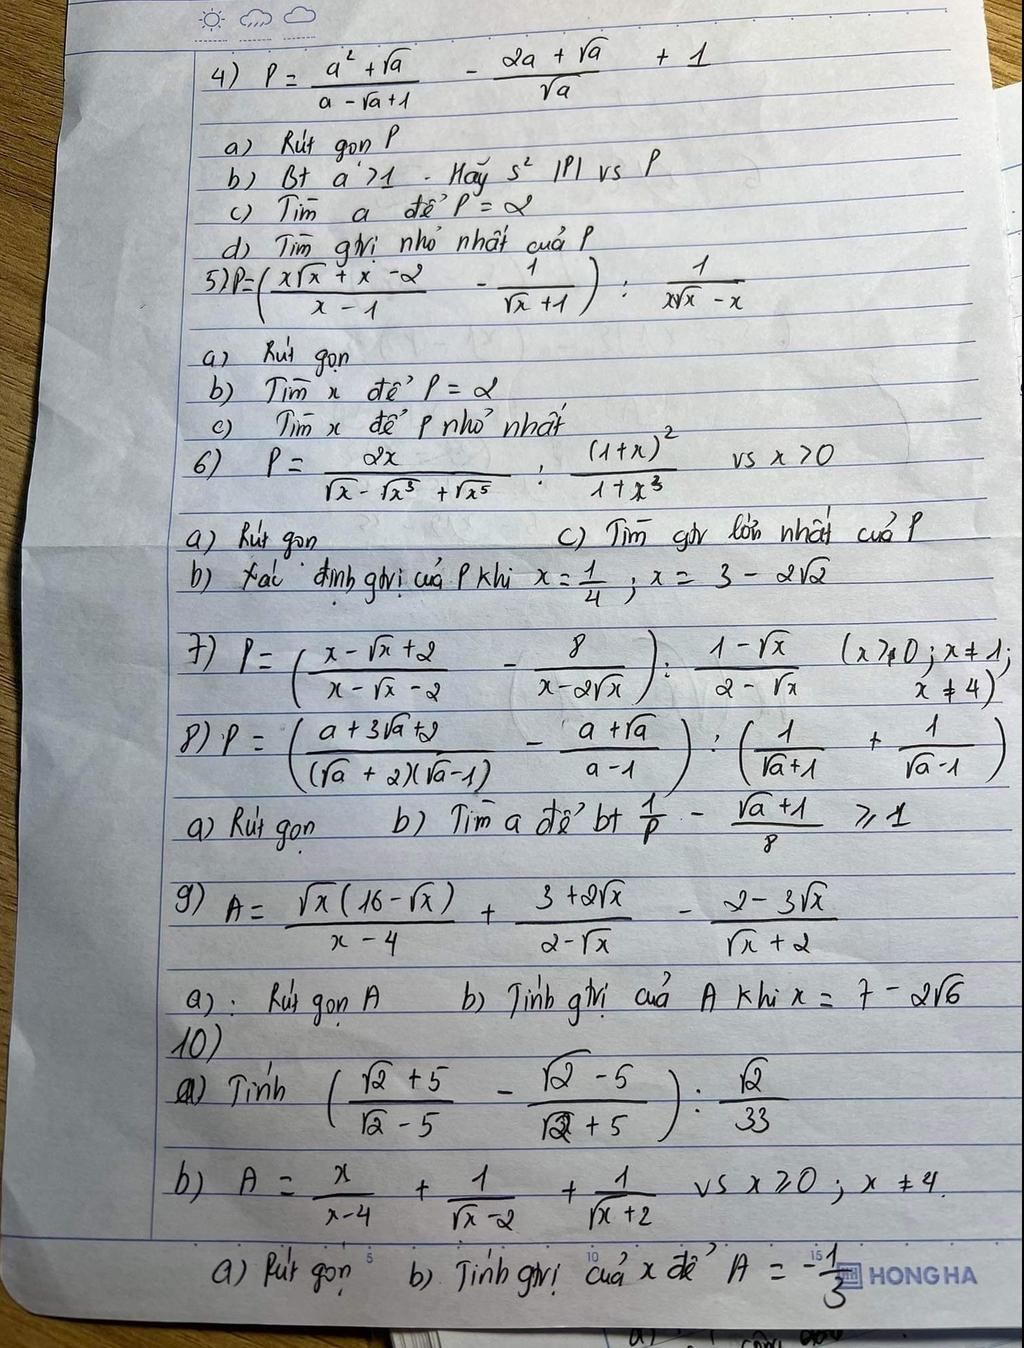 4) P = (a² + √a)/(a - √a + 1) - (2a + √a)/√a + 1
a) Rút gọn P
b) Bt a > 1 . Hãy s² |P| vs P
c) Tìm a để P = 2
d) Tìm gtrị nhỏ nhất của P
5) P = ((x√x + x - 2)/(x - 1) - 1/(√x + 1)) : 1/(x√x - x)
a) Rút gọn
b) Tìm x để P = 2
c) Tìm x để P nhỏ nhất
6) P = 2x/(√x - √x³ + √x⁵) : (1+x)²/(1+x³) vs x > 0
a) Rút gọn c) Tìm gtr lớn nhất của P
b) Xác định gtrị của P khi x = 1/4 ; x = 3 - 2√2
7) P = ((x - √x + 2)/(x - √x - 2) - 8/(x - 2√x)) : (1 - √x)/(2 - √x) (x > 0 ; x ≠ 1 ; x ≠ 4)
8) P = ((a + 3√a + 2)/((√a + 2)(√a - 1)) - (a + √a)/(a - 1)) : (1/(√a + 1) + 1/(√a - 1))
a) Rút gọn b) Tìm a để bt 1/P - (√a + 1)/8 ⩾ 1
9) A = √x(16 - √x)/(x - 4) + (3 + 2√x)/(2 - √x) - (2 - 3√x)/(√x + 2)
a) : Rút gọn A b) Tính gtrị của A khi x = 7 - 2√6
10)
a) Tính ((√2 + 5)/(√2 - 5) - (√2 - 5)/(√2 + 5)) : √2/33
b) A = x/(x-4) + 1/(√x - 2) + 1/(√x + 2) vs x ⩾ 0 ; x ≠ 4.
a) Rút gọn b) Tính gtrị của x để A = -1/3
5 10 15 HONG HA